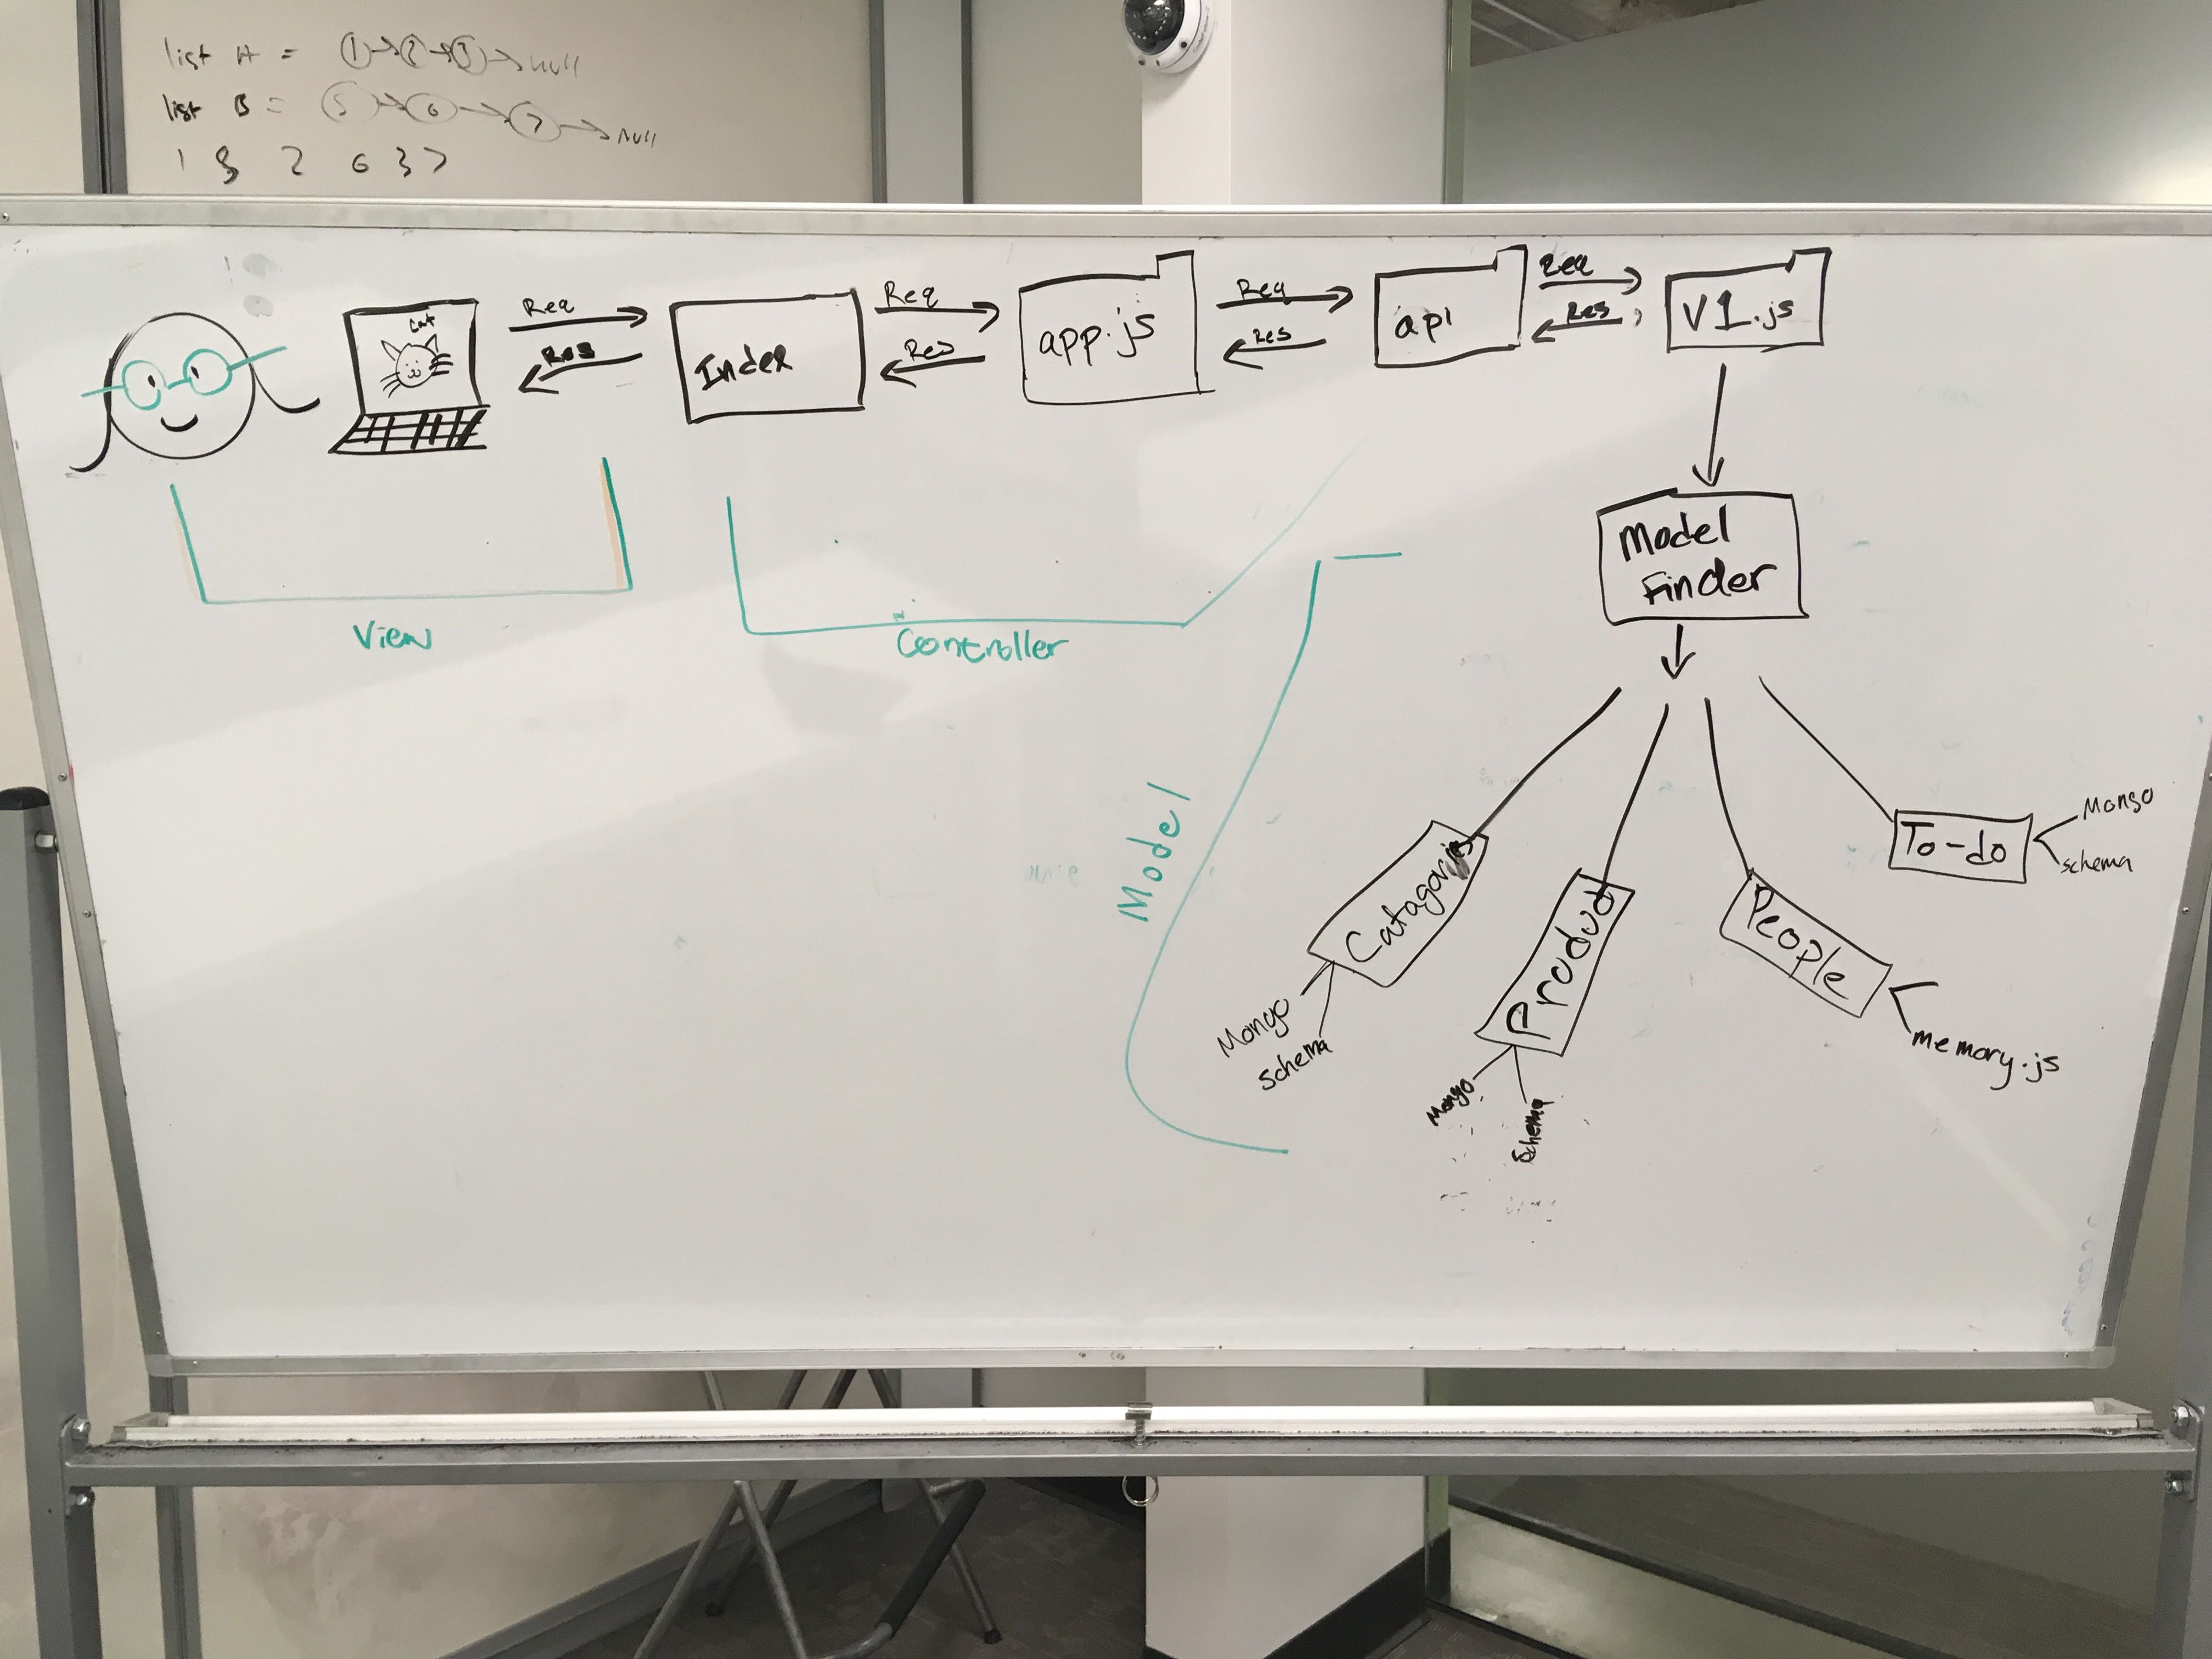 list A = 1 → 2 → 3 → null
list B = 5 → 6 → 7 → null
1 5 2 6 3 7
Cat
Req
Res
Index
Req
Res
app.js
Req
Res
api
Req
Res
V1.js
Model
Finder
View
Controller
Model
Catagories
Mongo
Schema
Product
Mongo
Schema
People
memory.js
To-do
Mongo
schema